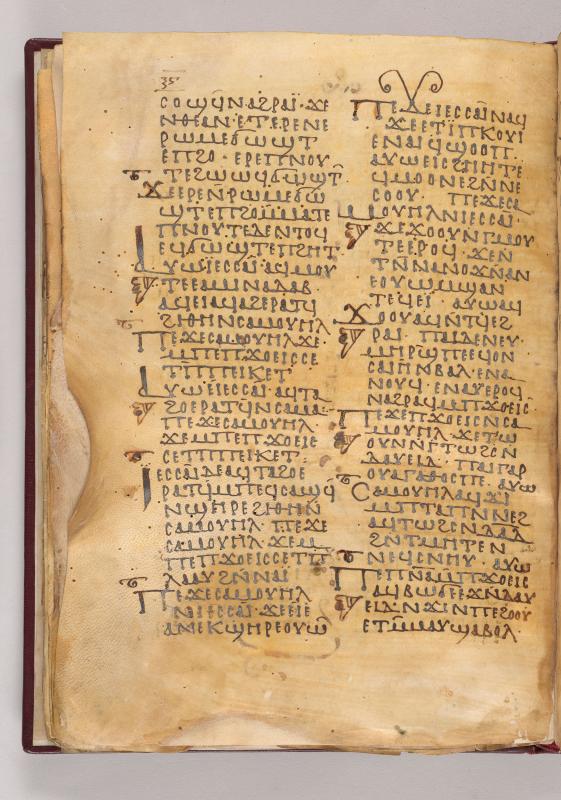 ⲗ̅ⲋ̅
ⲥⲟϣϥ̄ⲛⲁϩⲣⲁⲓ̈·ϫⲉ
ⲛⲑⲉⲁⲛ·ⲉⲧⲉⲣⲉⲛⲉ
ⲣⲱⲙⲉϭⲱϣⲧ
ⲉⲡϩⲟ·ⲉⲣⲉⲡⲛⲟⲩ
ⲧⲉϩⲱⲱϥϭⲱϣⲧ̄
ϫⲉⲉⲣⲉⲛ̄ⲣⲱⲙⲉϭⲱ
ϣⲧⲉⲡϩⲟⲙ̄ⲙⲁⲧⲉ
ⲡⲛⲟⲩⲧⲉⲇⲉⲛⲧⲟϥ
ⲉϥϭⲱϣⲧⲉⲡϩⲏⲧ
ⲁⲩⲱⲓ̈ⲉⲥⲥⲁⲓ̈·ⲁϥⲙⲟⲩ
ⲧⲉⲉⲁⲙⲓⲛⲁⲇⲁⲃ
ⲁϥⲉⲓⲁϥⲁϩⲉⲣⲁⲧϥ
ϩⲓⲑⲏⲛⲥⲁⲙⲟⲩⲏⲗ
ⲡⲉϫⲉⲥⲁⲙⲟⲩⲏⲗϫⲉ
ⲙⲡⲉⲡϫⲟⲉⲓⲥⲥⲉ
ⲧⲡ̄ⲡⲡⲉⲓⲕⲉⲧ
ⲁⲩⲱ·ⲉⲓⲉⲥⲥⲁⲓ̈·ⲁϥⲧⲁ
ϩⲟⲉⲣⲁⲧϥⲛⲥⲁⲙⲁ
ⲡⲉϫⲉⲥⲁⲙⲟⲩⲏⲗ
ϫⲉⲙⲡⲉⲡϫⲟⲉⲓⲥ
ⲥⲉⲧⲡⲡⲡⲉⲓⲕⲉⲧ·
ⲓ̈ⲉⲥⲥⲁⲓ̈ⲇⲉⲁϥⲧⲁϩⲟⲉ
ⲣⲁⲧϥ̄ⲙ̄ⲡⲉϥⲥⲁϣϥ̄
ⲛϣⲏⲣⲉϩⲓⲑⲏⲛ̄
ⲥⲁⲙⲟⲩⲏⲗ·ⲡⲉϫⲉ
ⲥⲁⲙⲟⲩⲏⲗ·ϫⲉⲙ
ⲡⲉⲡϫⲟⲉⲓⲥⲥⲉⲧⲡ
ⲗⲁⲁⲩϩⲛ̄ⲛⲁⲓ̈
ⲡⲉϫⲉⲥⲁⲙⲟⲩⲏⲗ
ⲛⲓ̈ⲉⲥⲥⲁⲓ·ϫⲉⲉⲓⲉ
ⲁⲛⲉⲕϣⲏⲣⲉⲟⲩⲱ̄
ⲡⲉϫⲉⲓⲉⲥⲥⲁⲓ̈ⲛⲁϥ
ϫⲉⲉⲧⲓ̈ⲡⲕⲟⲩⲓ
ⲉⲛⲁⲓϥϣⲟⲟⲡ
ⲁⲩⲱⲉⲓⲥϩⲏⲏⲧⲉ
ϥⲙⲟⲟⲛⲉϩⲛ̄ⲛⲉ
ⲥⲟⲟⲩ·ⲡⲉϫⲉⲥⲁ
ⲙⲟⲩⲏⲗⲛⲓⲉⲥⲥⲁⲓ·
ϫⲉϫⲟⲟⲩⲛⲅⲙⲟⲩ
ⲧⲉⲉⲣⲟϥ·ϫⲉⲛ̄
ⲧⲛ̄ⲛⲁⲛⲟϫⲛ̄ⲁⲛ
ⲉⲟⲩⲱⲙϣⲁⲛ
ⲧⲉϥⲉⲓ·ⲁⲩⲱⲁϥ
ϫⲟⲟⲩⲁϥⲛ̄ⲧϥ̄ⲉϩ
ⲣⲁⲓ·ⲡⲁⲓⲇⲉⲛⲉⲩ
ⲙⲏⲣϣ̄ⲡⲉⲉϥⲟⲛ
ⲥⲁⲓⲛⲃⲁⲗ·ⲉⲛⲁ
ⲛⲟⲩϥ·ⲉⲛⲁⲩⲉⲣⲟϥ
ⲛⲁϩⲣⲁϥⲙⲡϫⲟⲉⲓⲥ
ⲡⲉϫⲉⲡϫⲟⲉⲓⲥⲛⲥⲁ
ⲙⲟⲩⲏⲗ·ϫⲉⲧⲱ
ⲟⲩⲛⲛⲅ̄ⲧⲱϩⲥⲛ
ⲇⲁⲩⲉⲓⲇ·ⲡⲁⲓⲅⲁⲣ
ⲟⲩⲁⲅⲁⲑⲟⲥⲡⲉ·ⲁⲩⲱ
ⲥⲁⲙⲟⲩⲏⲗⲁϥϫⲓ
ⲙⲡⲧⲁⲡⲛ̄ⲛⲉϩ
ⲁϥⲧⲱϩⲥⲛⲇⲁⲇ
ϩⲛ̄ⲧⲙⲏⲧⲉⲛ
ⲛⲉϥⲥⲛⲏⲩ·ⲁⲩⲱ
ⲡⲉⲡⲛ̄ⲁ̄ⲙⲡϫⲟⲉⲓⲥ
ⲁϥⲃⲱϭⲉⲉϫⲛ̄ⲇⲁⲩ
ⲉⲓⲇϫⲓⲛⲡⲉϩⲟⲟⲩ
ⲉⲧⲙ̄ⲙⲁⲩϣⲁⲃⲟⲗ·